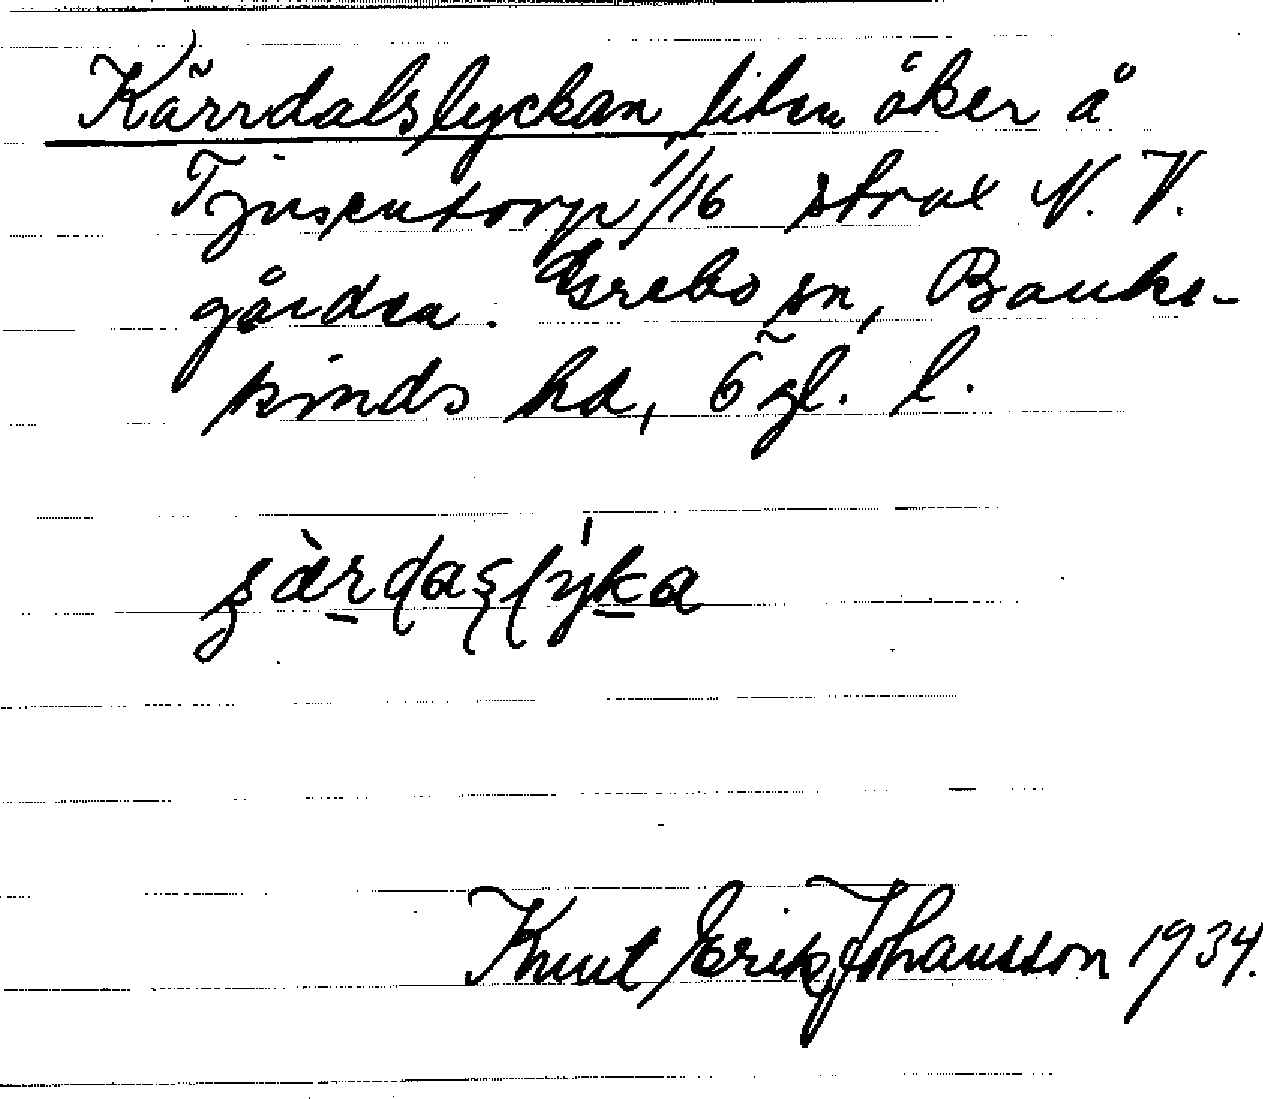 Kärrdalslyckan, liten åker å
Tjusentorp 1/16 strax N. V.
gården. Grebo sn, Banke-
kinds hd, Ögl. l.
Knut Erik Johansson 1934.